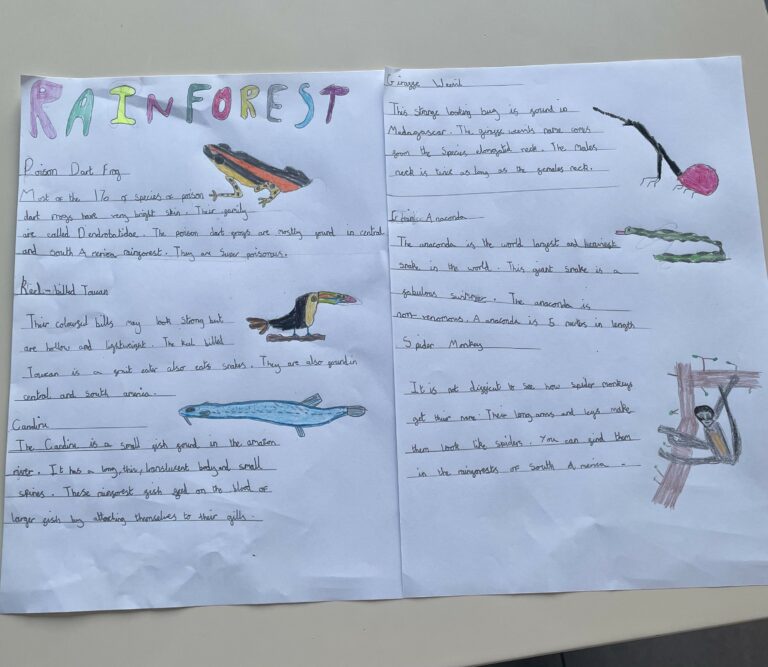 RAINFOREST
Poison Dart Frog
Most of the 170 of species of poison
dart frogs have very bright skin. Their family
are called Dendrobatidae. The poison dart frogs are mostly found in central
and south America rainforest. They are super poisonous.
Keel-billed Toucan
Their coloured bills may look strong but
are hollow and lightweight. The keel billed
Toucan is a fruit eater also eats snakes. They are also found in
central and south america.
Candiru
The Candiru is a small fish found in the amazon
river. It has a long, thin, translucent body and small
spines. These rainforest fish feed on the blood of
larger fish by attaching themselves to their gills.
Giraffe Weevil
This strange looking bug is found in
Madagascar. The giraffe weevils name comes
from the species elongated neck. The males
neck is twice as long as the females neck.
Anaconda
The anaconda is the world largest and heaviest
snake in the world. This giant snake is a
fabulous swimmer. The anaconda is
non-venomous. Anaconda is 5 metres in length
Spider Monkey
It is not difficult to see how spider monkeys
get their name. Their long arms and legs make
them look like spiders. You can find them
in the rainforests of South America.